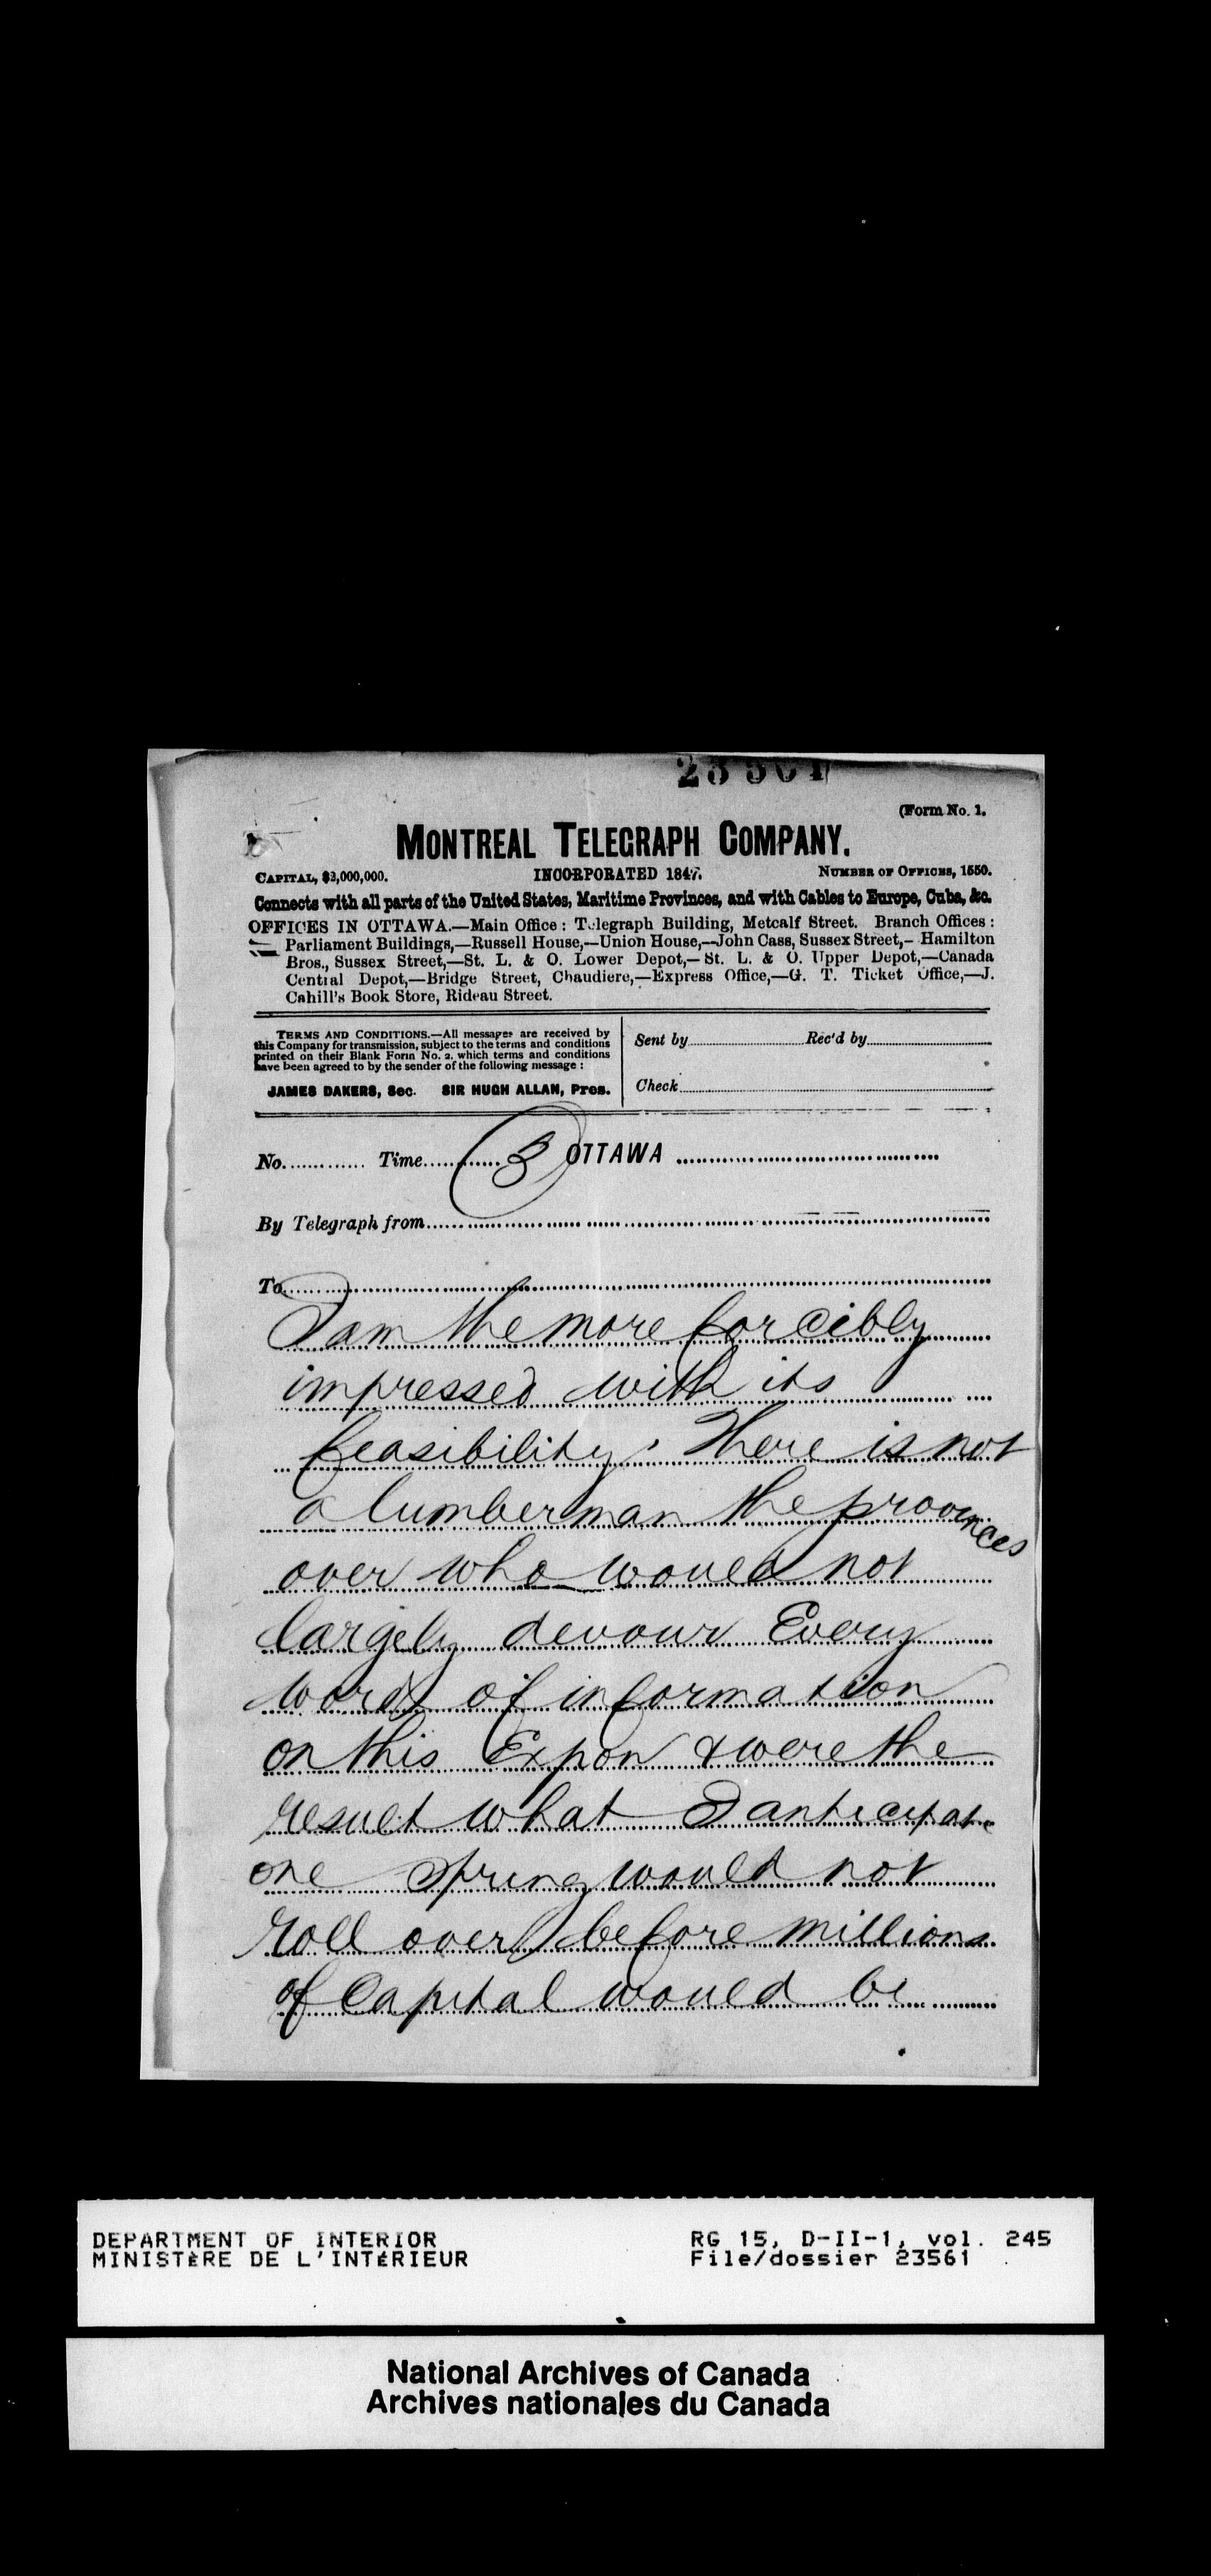 23561
(Form No. 1.
MONTREAL TELEGRAPH COMPANY.
CAPITAL, $2,000,000. INCORPORATED 1847. NUMBER OF OFFICES, 1550.
Connects with all parts of the United States, Maritime Provinces, and with Cables to Europe, Cuba, &c.
OFFICES IN OTTAWA.—Main Office: Telegraph Building, Metcalf Street. Branch Offices:
Parliament Buildings,—Russell House,—Union House,—John Cass, Sussex Street,—Hamilton
Bros., Sussex Street,—St. L. & O. Lower Depot,—St. L. & O. Upper Depot,—Canada
Central Depot,—Bridge Street, Chaudiere,—Express Office,—G. T. Ticket Office,—J.
Cahill's Book Store, Rideau Street.
TERMS AND CONDITIONS.—All messages are received by
this Company for transmission, subject to the terms and conditions
printed on their Blank Form No. 2. which terms and conditions
have been agreed to by the sender of the following message:
JAMES DAKERS, Sec. SIR HUGH ALLAN, Pres.
Sent by Rec'd by
Check
No. Time 3 OTTAWA
By Telegraph from
To
I am the more forcibly
impressed with its
feasibility. There is not
a lumberman the provinces
over who would not
largely devour Every
word of information
on this Expon & were the
result what I anticipate
one spring would not
roll over before millions
of Capital would be
DEPARTMENT OF INTERIOR
MINISTÈRE DE L'INTÉRIEUR
RG 15, D-II-1, vol. 245
File/dossier 23561
National Archives of Canada
Archives nationales du Canada